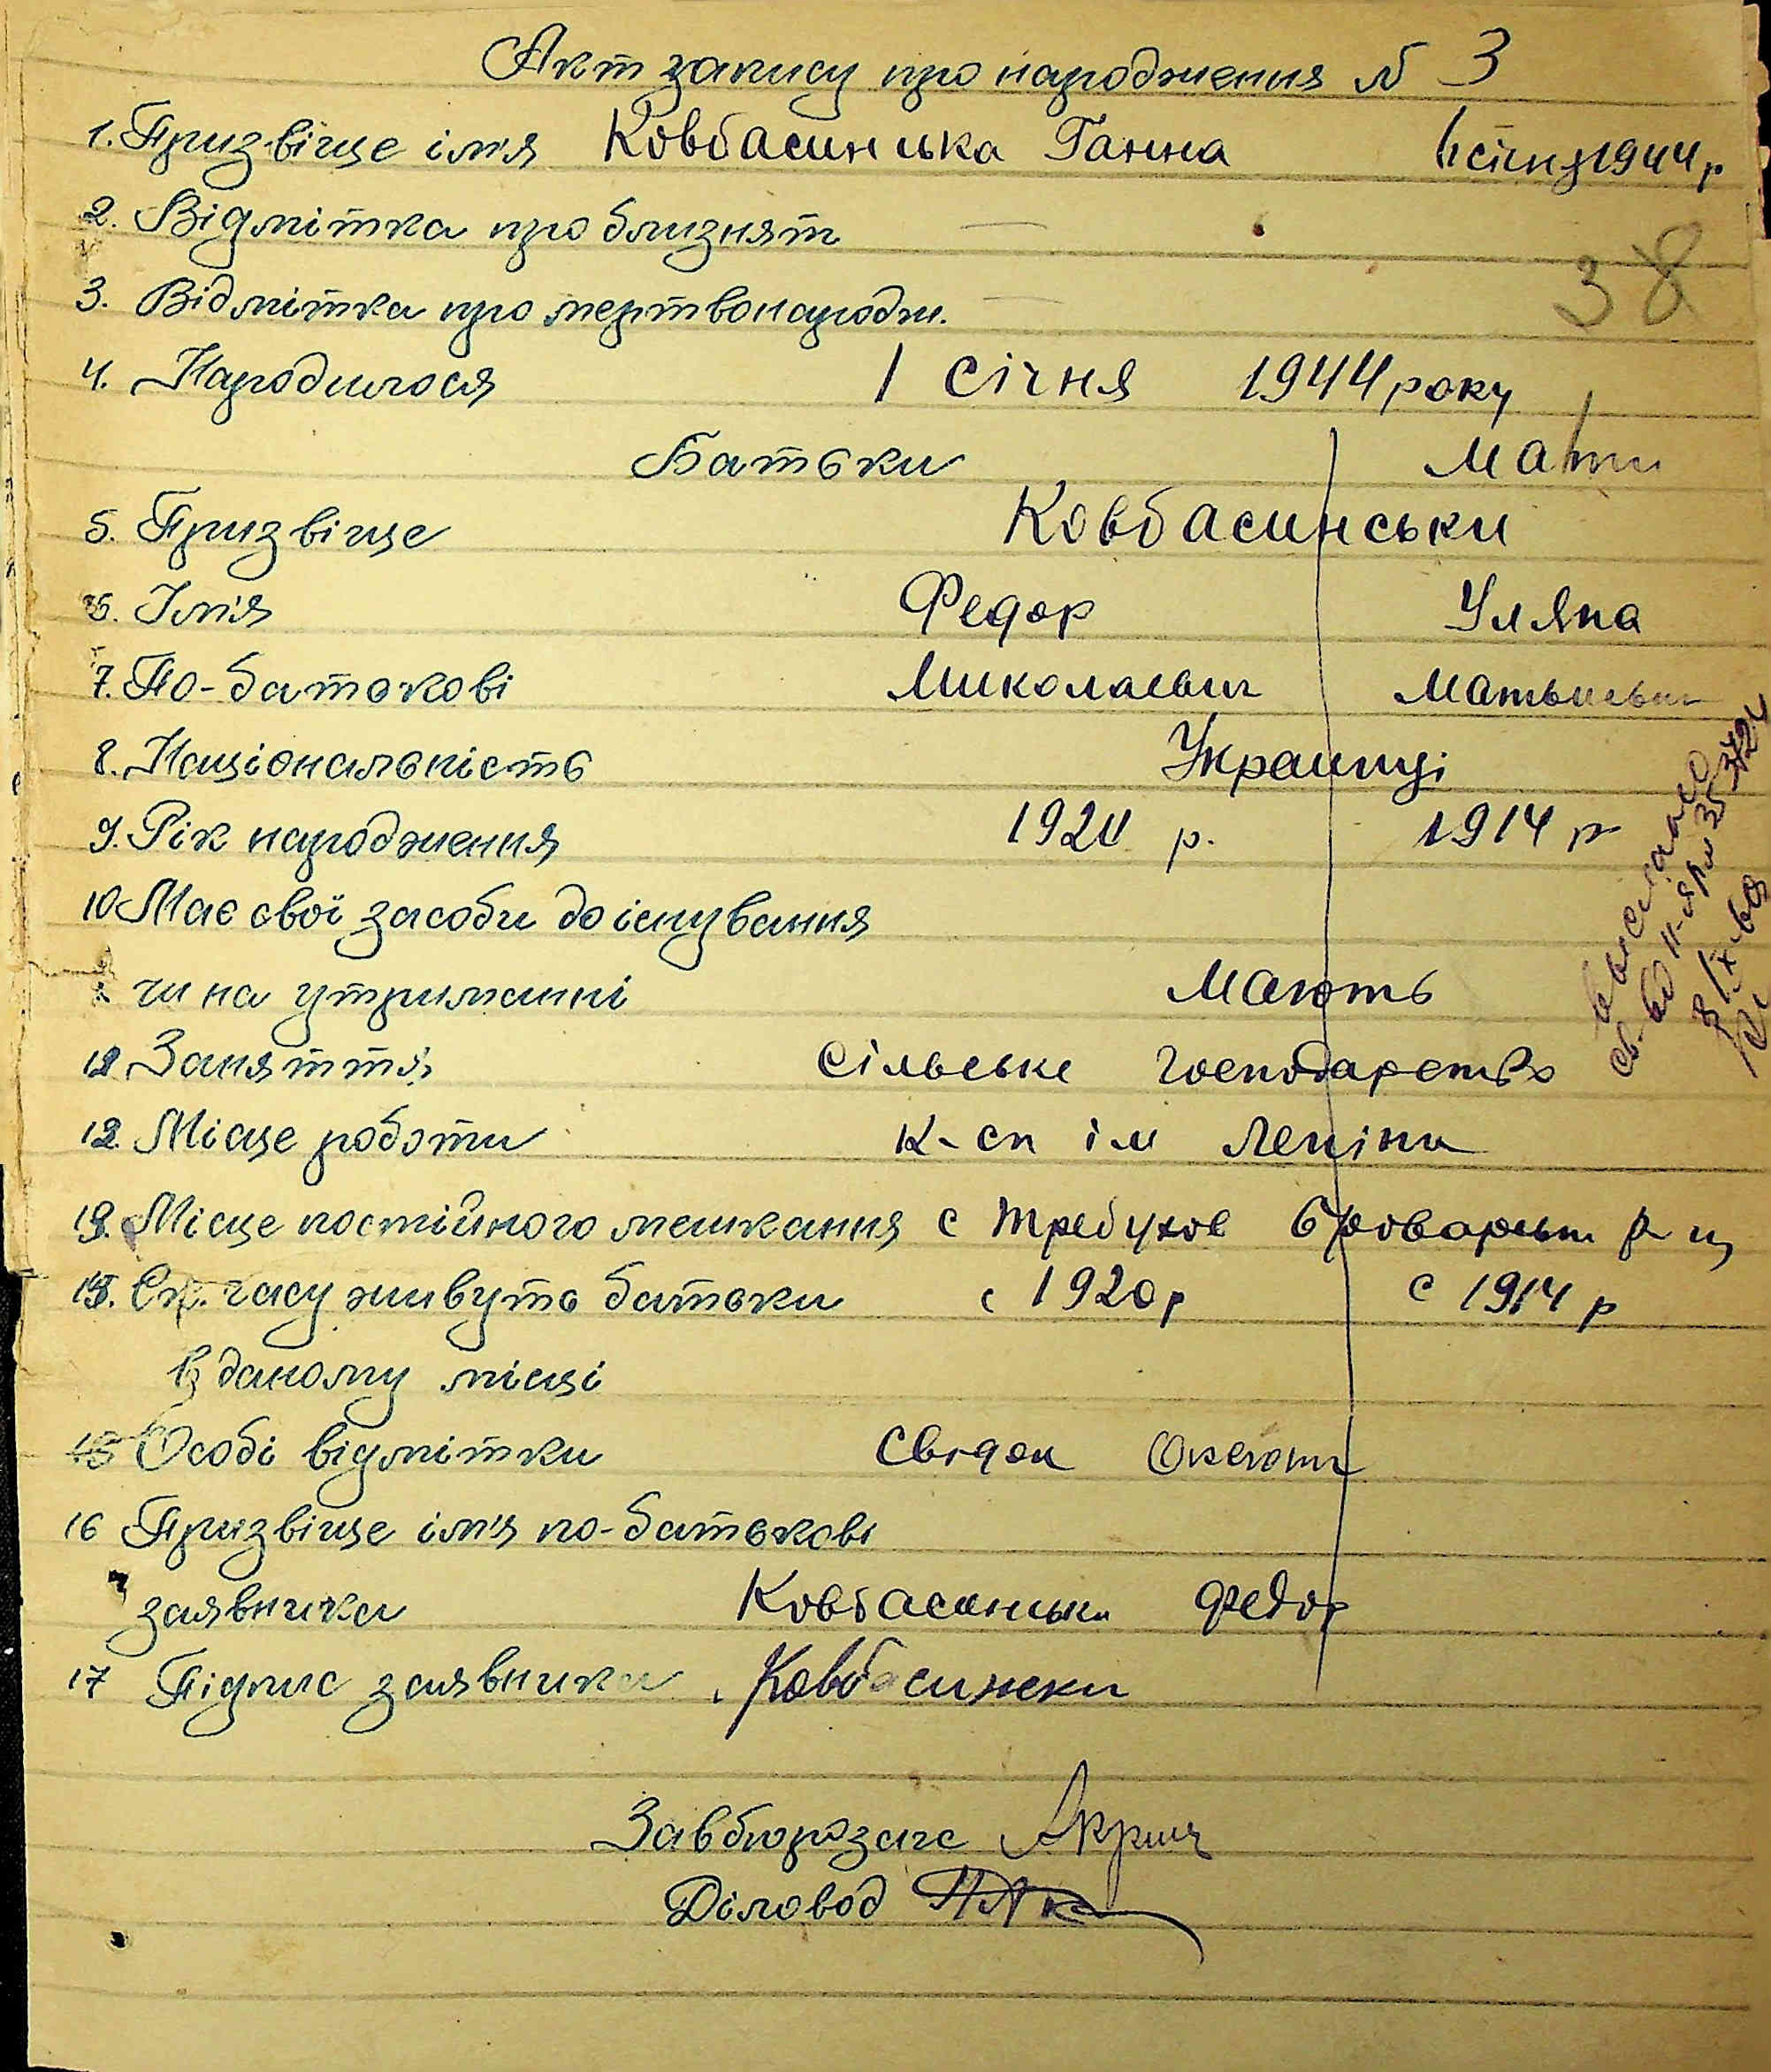 Акт запису про народження № 3
1. Призвіще ім'я Ковбасинська Ганна січня 1944 р
2. Відмітка про близнят —
38
3. Відмітка про мертвонародж. —
4. Народилося 1 Січня 1944 року
Батьки Мати
5. Призвіще Ковбасинськи
6. Ім'я Федор Уляна
7. По-батькові Миколаевич
8. Національність Украинці
9. Рік народження р. 1914 р
10 Має свої засоби до існування
чи на утриманні Мають
Заняття Сільське господарство
12. Місце роботи к-сп ім Леніна
Місце постійного мешкання с Требухов
часу живуть батьки с 1920 р с 1914 р
в даному місці
Особі відмітки
16 Призвіще ім'я по-батькові
заявника Ковбасинськи Федор
17 Підпис заявника Ковбасински
Завбюрозагс
Діловод